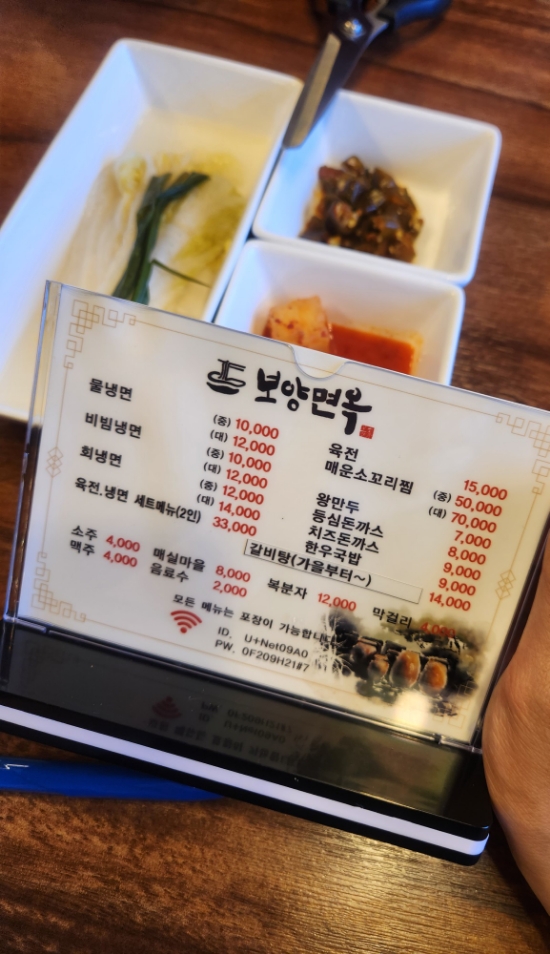 보양면옥
물냉면 (중) 10,000
(대) 12,000
비빔냉면 (중) 10,000
(대) 12,000
회냉면 (중) 12,000
(대) 14,000
육전.냉면 세트메뉴(2인) 33,000
육전 15,000
매운소꼬리찜 (중) 50,000
(대) 70,000
왕만두 7,000
등심돈까스 8,000
치즈돈까스 9,000
한우국밥 9,000
갈비탕(가을부터~) 14,000
소주 4,000 매실마을 8,000 복분자 12,000 막걸리
맥주 4,000 음료수 2,000
모든 메뉴는 포장이 가능합니다
ID. U+Net09A0
PW. 0F209H21#7